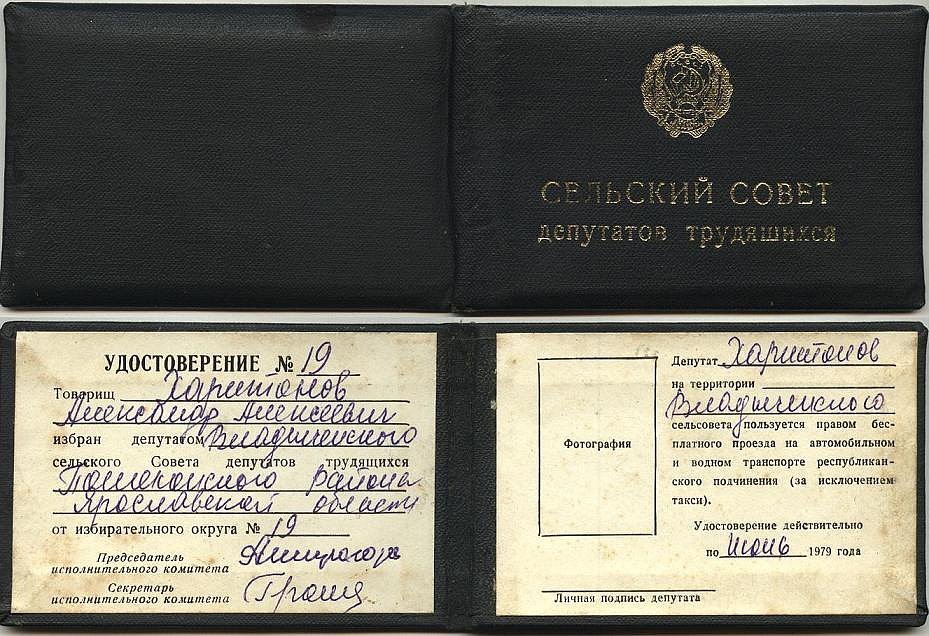 СЕЛЬСКИЙ СОВЕТ
депутатов трудящихся
УДОСТОВЕРЕНИЕ № 19
Товарищ Харитонов
Александр Алексеевич
избран депутатом Владыческого
сельского Совета депутатов трудящихся
Пошехонского района
Ярославской области
от избирательного округа № 19
Председатель
исполнительного комитета
Секретарь
исполнительного комитета
Фотография
Депутат Харитонов
на территории
Владыческого
сельсовета пользуется правом бес-
платного проезда на автомобильном
и водном транспорте республикан-
ского подчинения (за исключением
такси).
Удостоверение действительно
по июнь 1979 года
Личная подпись депутата